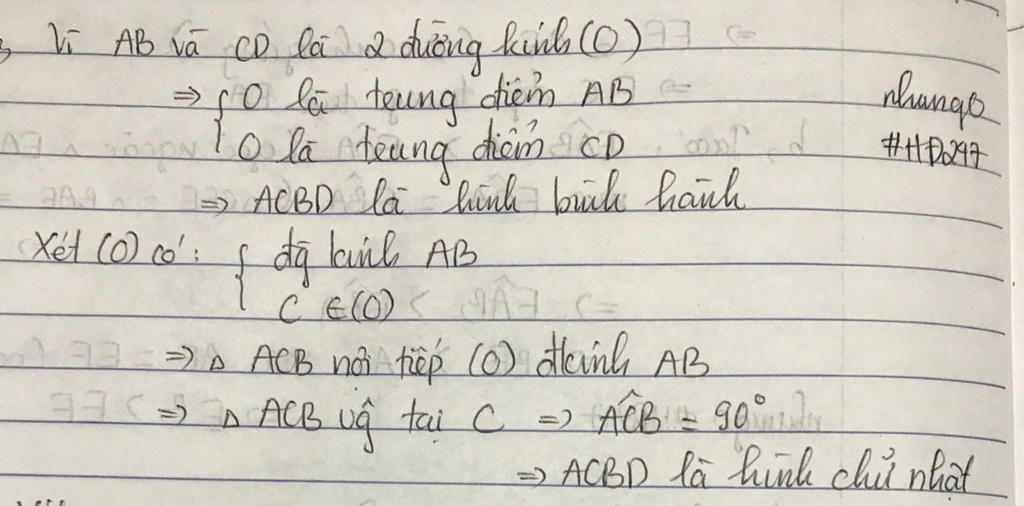 Vì AB và CD là 2 đường kính (O)
⇒ { O là trung điểm AB
nhungo
O là trung điểm CD
#HĐ247
⇒ ACBD là hình bình hành
Xét (O) có: { đg kính AB
C ∈ (O)
⇒ Δ ACB nội tiếp (O) đkính AB
⇒ Δ ACB vg tại C ⇒ AĈB = 90°
⇒ ACBD là hình chữ nhật